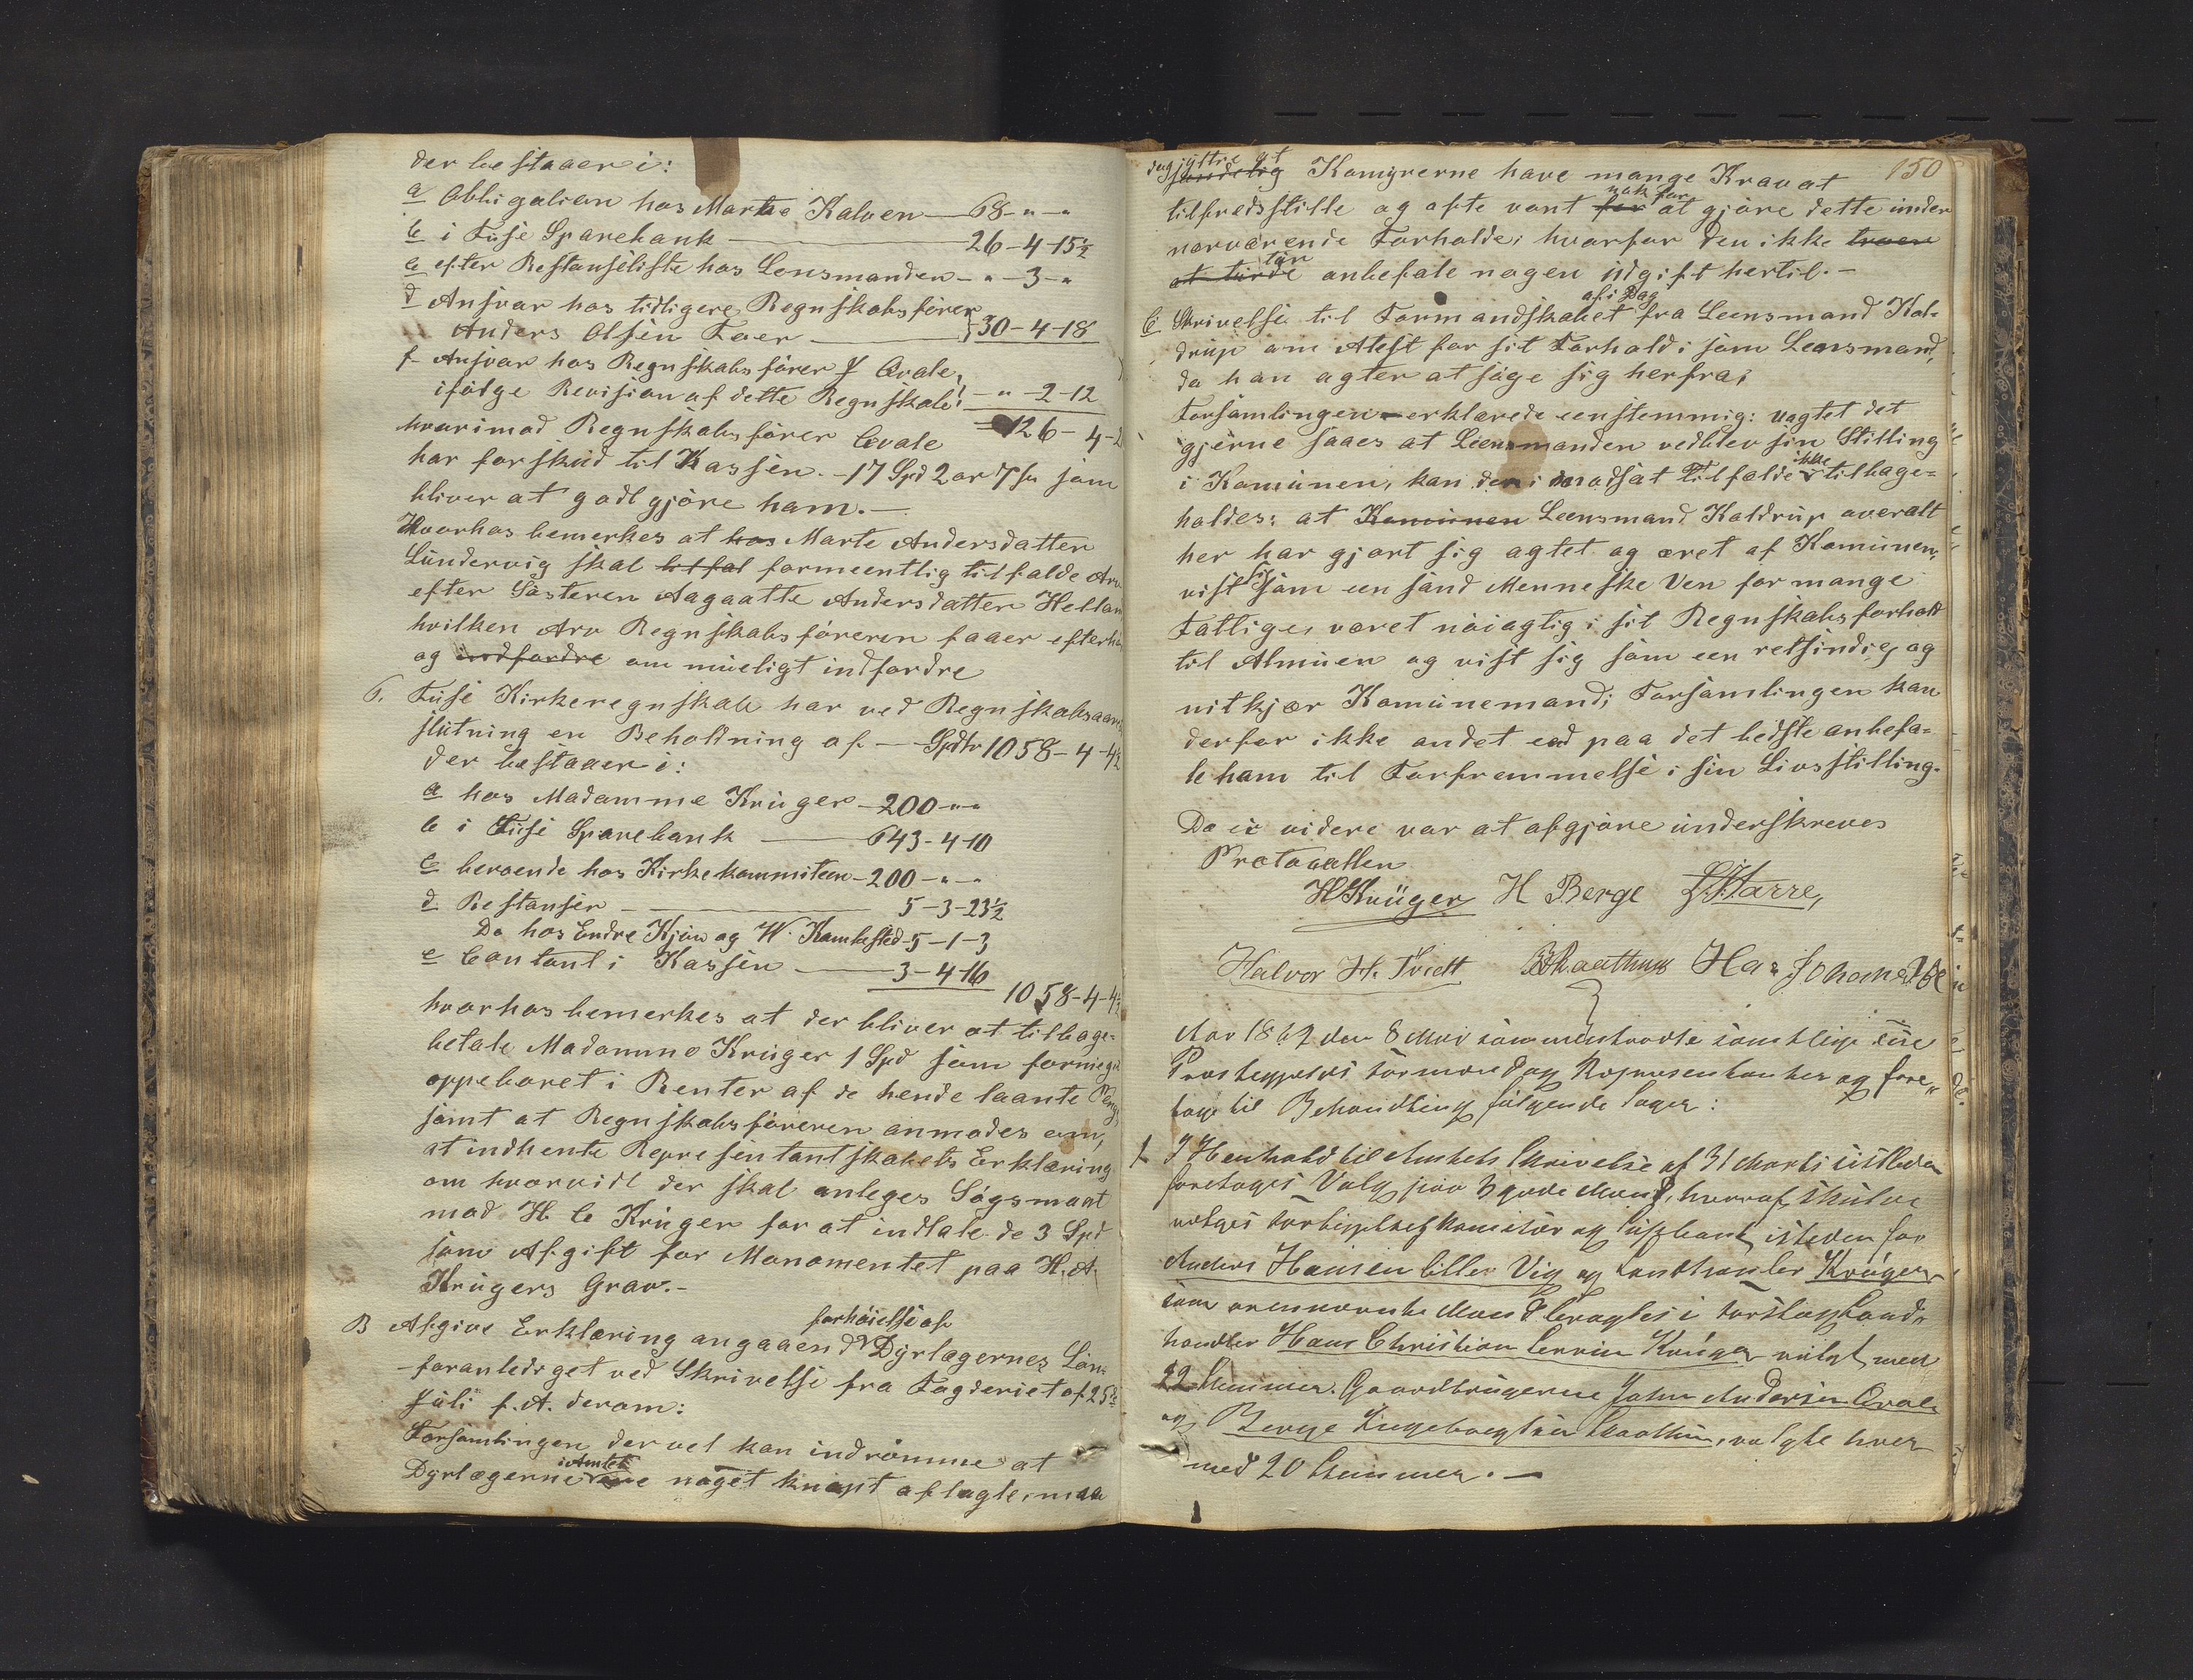 der bestaaer i:
a Obligation hos Marthe Kalven — 68 - " - "
b i Fuse Sparebank — 26 - 4 - 15½
c efter Restanseliste hos Lensmanden - " - 3 - "
d Ansvar hos tidligere Regnskabsfører
Anders Olsen Toer — } 30 - 4 - 18
f Ansvar hos Regnskabsfører J Qvale,
ifølge Revision af dette Regnskab! - " - 2 - 12
126 - 4 -
hvorimod Regnskabsfører Qvale
har forskud til Kassen. - 17 Spd 2 or 7 sk som
bliver at godtgjøre ham. -
Hvorhos bemerkes at hos Marte Andersdatter
Lundervig skal tilfal formeentlig tilfalde Arv
efter Søsteren Aagaatte Andersdatter Hellan
hvilken Arv Regnskabsføreren faaer efterhø
og indfordre om mueligt indfordre
6. Fuse Kirkeregnskab har ved Regnskabsaar
slutning en Beholdning af — Spdlr 1058 - 4 - 4½
der bestaaer i:
a hos Madamme Krüger - 200 - " - "
b i Fuse Sparebank — 643 - 4 - 10
c beroende hos Kirkekommiteen - 200 - " - "
d Restanser — 5 - 3 - 23½
Do hos Endre Kjøn og W. Kambested - 5 - 1 - 3
e Contant i Kassen — 3 - 4 - 16
1058 - 4 - 4½
hvorhos bemerkes at der bliver at tilbage-
betale Madamme Krüger 1 Spd som formeget
oppebaret i Renter af de hende laante Penge,
samt at Regnskabsføreren anmodes om,
at indhente Representantskabets Erklæring
om hvorvidt der skal anleges Søgsmaal
mod H C Krüger for at indtale de 3 Spd
som Afgift for Monomentet paa H. A.
Krügers Grav. -
B Afgive Erklæring angaaende forhøielse af Dyrlægernes Løn
- foranlediget ved Skrivelse fra Fogderiet af 25de
Juli f. A. derom:
Forsamlingen der vel kan indrømme at
Dyrlægerne i Amtet ere noget knapt aflagte, maa
150
dog yttre at Komynerne have mange Krav at
tilfredsstille og ofte vont for nok for at gjøre dette under
nærværende Forholde; hvorfor den ikke troer
at turde tør anbefale nogen udgift hertil. -
C Skrivelse til Formandskabet af i Dag fra Leensmand Kol-
drup om Atest for sit Forhold i som Leensmand,
da han agter at søge sig herfra;
Forsamlingen erklærede eenstemmig: uagtet det
gjerne saaes at Leensmanden vedblev sin Stilling
i Komunen, kan den i modsat Tilfælde ikke tilbage-
holdes: at Komunen Leensmand Koldrup overalt
her har gjort sig agtet og æret af Komunen,
vist sig som een sand Menneske Ven for mange
Fattige, været nøiagtig i sit Regnskabsforhold
til Almuen og vist sig som een retsindig og
nitkjær Komunemand; Forsamlingen kan
derfor ikke andet end paa det bedste anbefa-
le ham til Forfremmelse i sin Livsstilling.
Da ei videre var at afgjøre underskreves
Protocollen
HKrüger H Berge Harre,
Halvor H. Tvedt Raathun Hans Johannes
Aar 1867 den 8 Mai sammentraadte samtlige
Præstegjelds Formænd og Repræsentanter og fore-
toge til Behandling følgende Sager:
1 I Henhold til Amtets Skrivelse af 31 Marts sidstleden
foretoges Valg paa 3 gode Mænd, hvoraf skulde
velges Forligelseskomisær og isteden for
Anders Hansen lille Vig og Landhandler Krüger
som ovennævnte Mænd bragtes i Forslag Land-
handler Hans Christian Krüger valgt med
22 Stemmer. Gaardbrugerne John Andersen Qvale
og Berge Ingebregtsen valgte hver
med 20 Stemmer. -